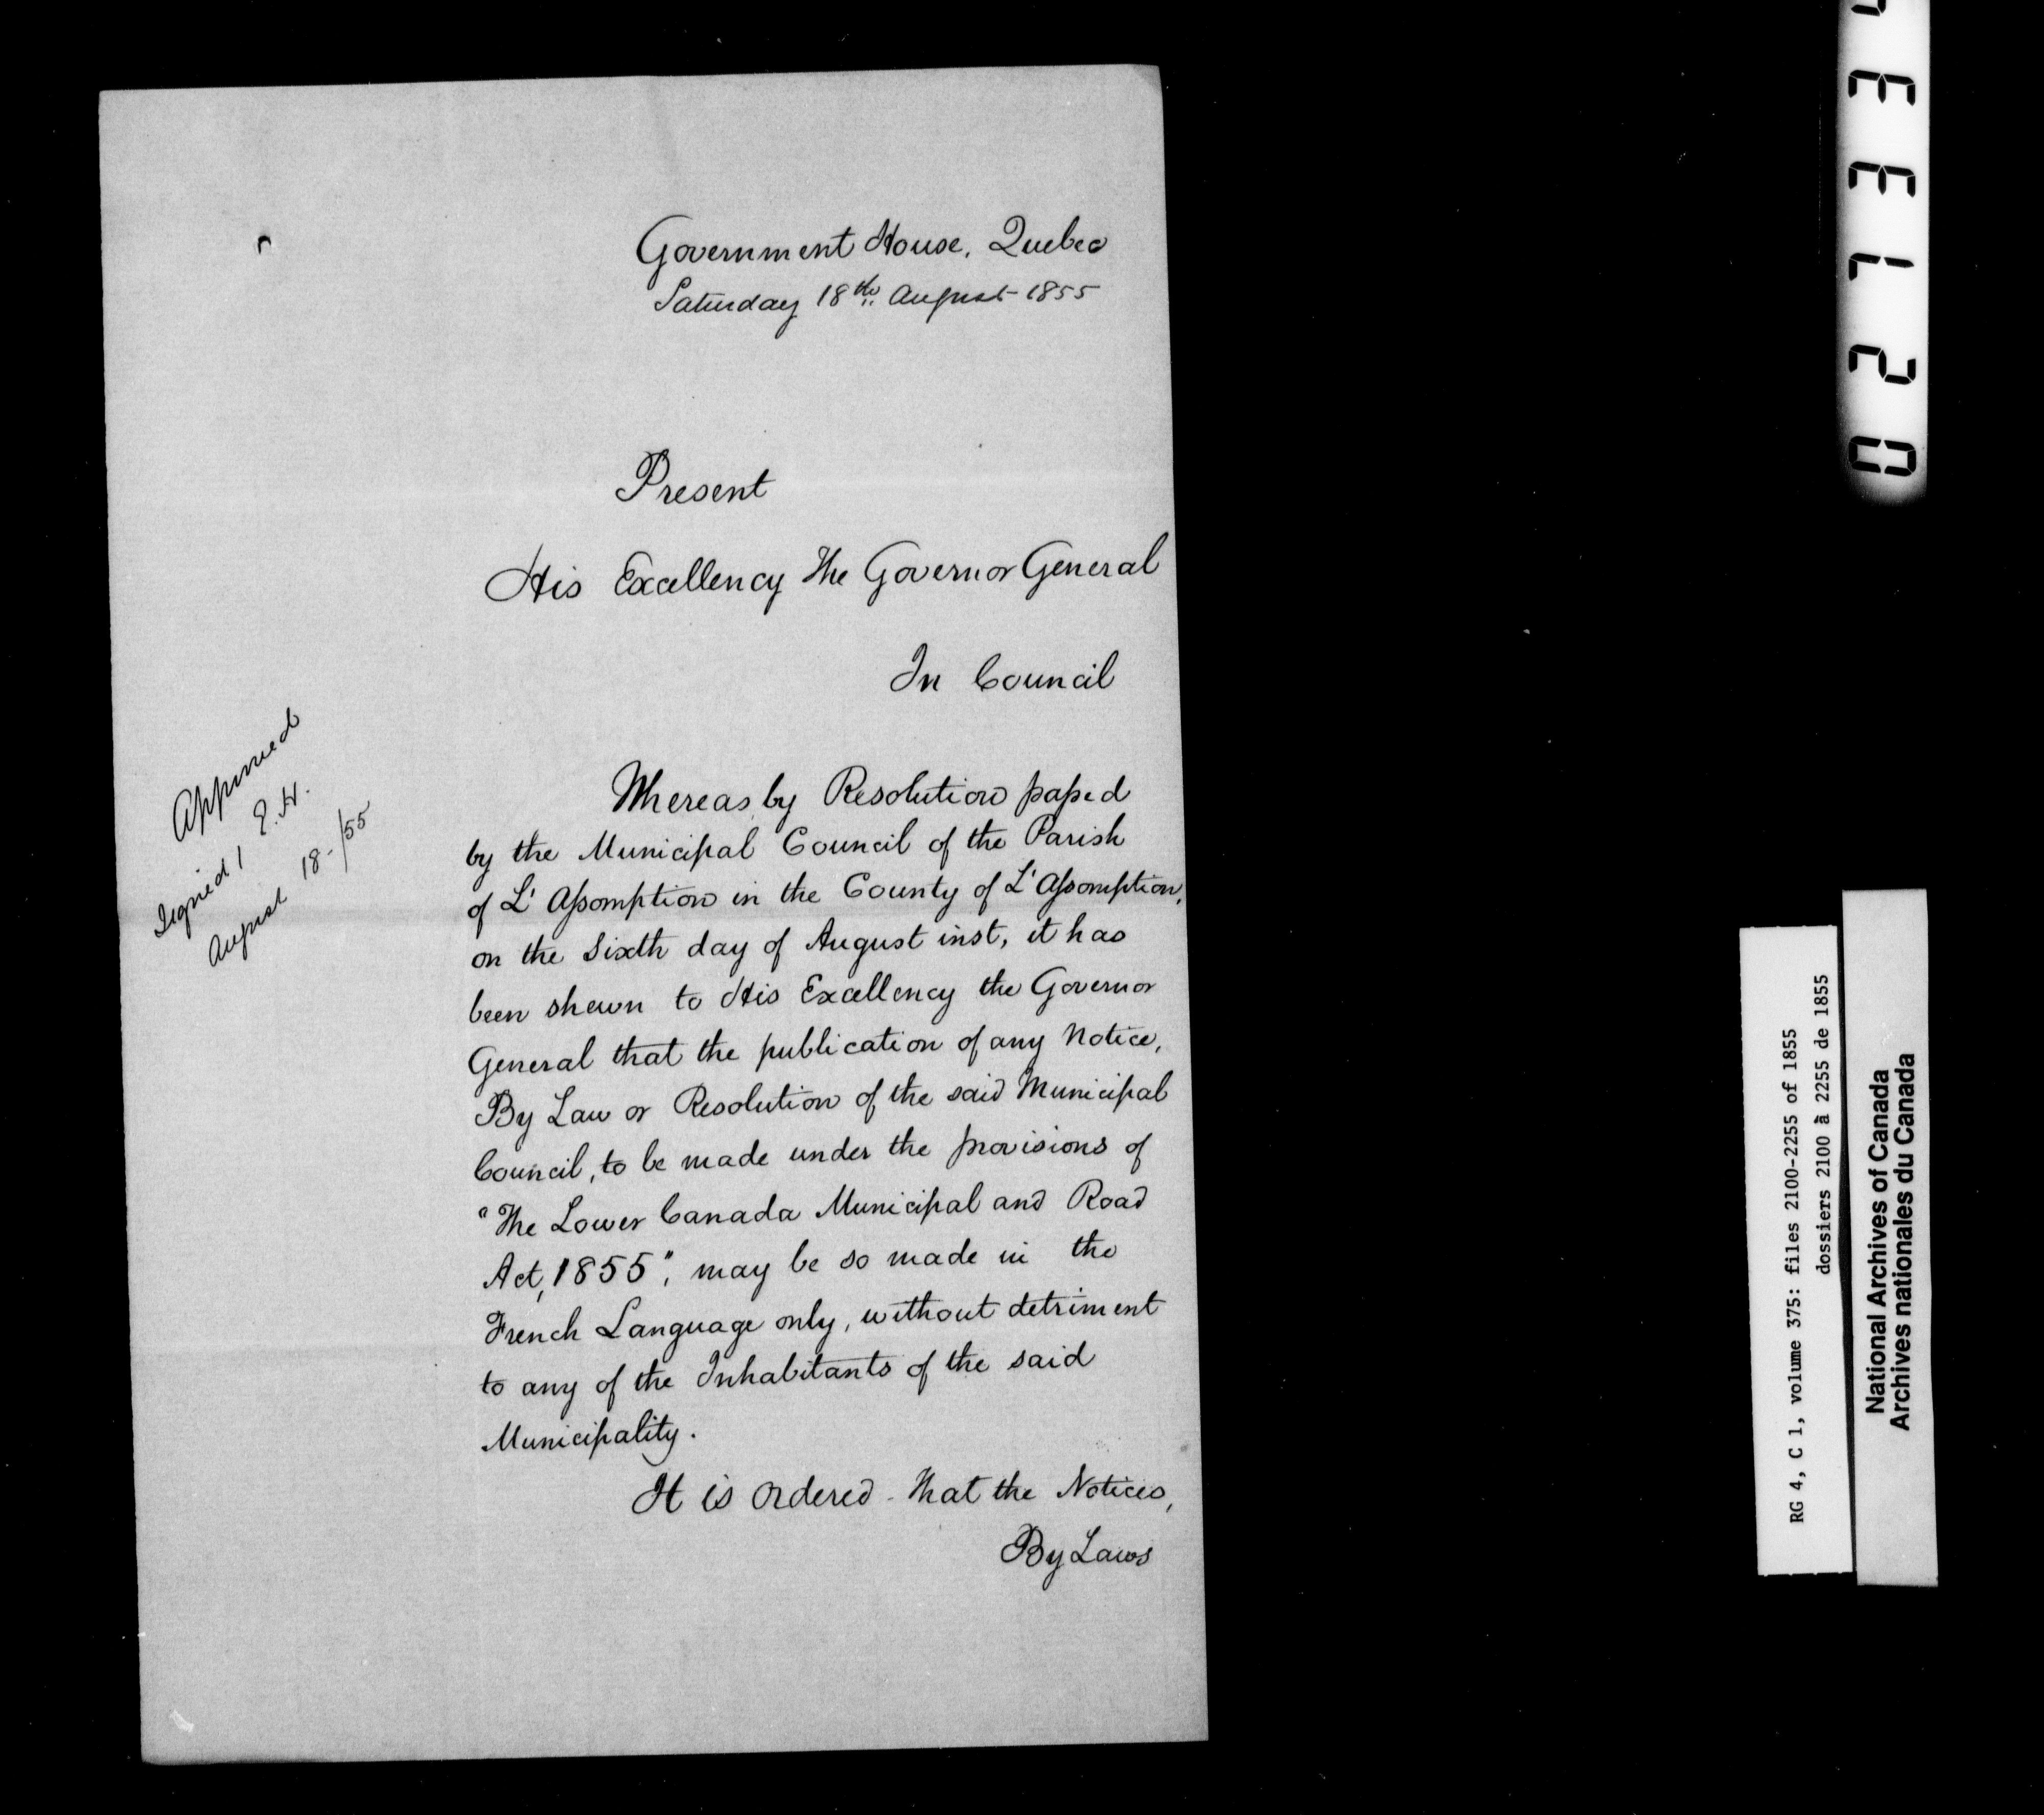 Government House, Quebec
Saturday 18th August 1855
Present
His Excellency The Governor General
In Council
Approved
Signed / E. H.
August 18-/55
Whereas by Resolution passed
by the Municipal Council of the Parish
of L'Assomption in the County of L'Assomption,
on the Sixth day of August inst, it has
been shewn to His Excellency the Governor
General that the publication of any Notice,
By Law or Resolution of the said Municipal
Council, to be made under the provisions of
"The Lower Canada Municipal and Road
Act, 1855", may be so made in the
French Language only, without detriment
to any of the Inhabitants of the said
Municipality.
It is Ordered - That the Notices,
By Laws
02133
RG 4, C 1, volume 375: files 2100-2255 of 1855
dossiers 2100 à 2255 de 1855
National Archives of Canada
Archives nationales du Canada